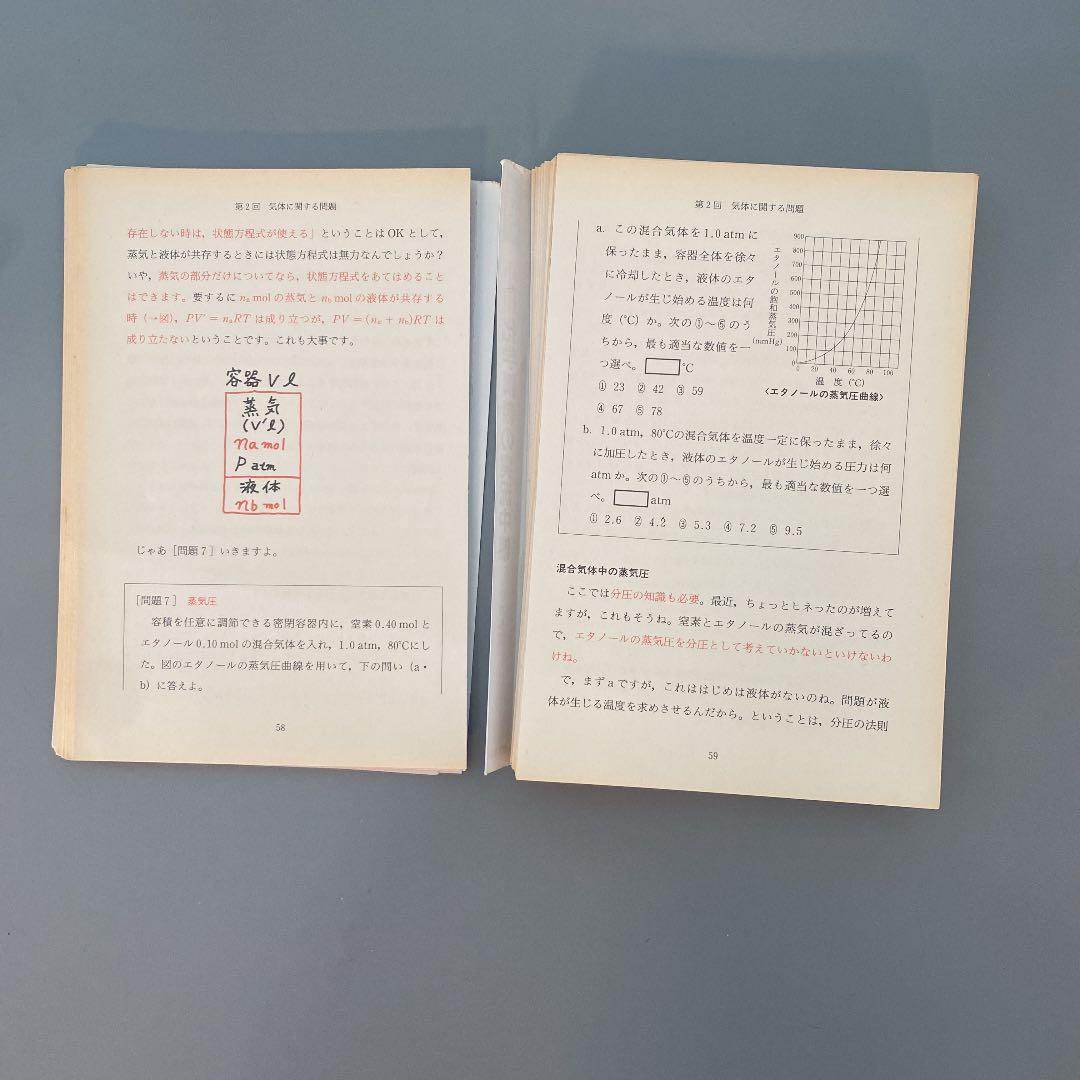 第2回 気体に関する問題
存在しない時は，状態方程式が使える」ということはOKとして，
蒸気と液体が共存するときには状態方程式は無力なんでしょうか？
いや，蒸気の部分だけについてなら，状態方程式をあてはめること
はできます。要するにna molの蒸気とnb molの液体が共存する
時（→図），PV′=naRTは成り立つが，PV=(na+nb)RTは
成り立たないということです。これも大事です。
容器Vℓ
蒸気
(V′ℓ)
na mol
P atm
液体
nb mol
じゃあ［問題7］いきますよ。
［問題7］ 蒸気圧
容積を任意に調節できる密閉容器内に，窒素0.40molと
エタノール0.10molの混合気体を入れ，1.0atm，80℃にし
た。図のエタノールの蒸気圧曲線を用いて，下の問い（a・
b）に答えよ。
58
第2回 気体に関する問題
a. この混合気体を1.0atmに
保ったまま，容器全体を徐々
に冷却したとき，液体のエタ
ノールが生じ始める温度は何
度（℃）か。次の①〜⑤のう
ちから，最も適当な数値を一
つ選べ。 ℃
① 23 ② 42 ③ 59
④ 67 ⑤ 78
エタノールの飽和蒸気圧
(mmHg)
900
800
700
600
500
400
300
200
100
0
0 20 40 60 80 100
温 度（℃）
〈エタノールの蒸気圧曲線〉
b. 1.0atm，80℃の混合気体を温度一定に保ったまま，徐々
に加圧したとき，液体のエタノールが生じ始める圧力は何
atmか。次の①〜⑤のうちから，最も適当な数値を一つ選
べ。 atm
① 2.6 ② 4.2 ③ 5.3 ④ 7.2 ⑤ 9.5
混合気体中の蒸気圧
ここでは分圧の知識も必要。最近，ちょっとヒネったのが増えて
ますが，これもそうね。窒素とエタノールの蒸気が混ざってるの
で，エタノールの蒸気圧を分圧として考えていかないといけないわ
けね。
で，まずaですが，これははじめは液体がないのね。問題が液
体が生じる温度を求めさせるんだから。ということは，分圧の法則
59